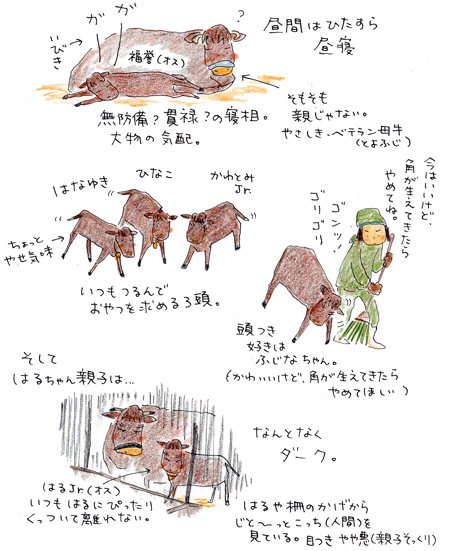 ガ
ガ
いびき
福誉(オス)
?
昼間はひたすら
昼寝
無防備？貫禄？の寝相。
大物の気配。
そもそも
親じゃない。
やさしき・ベテラン母牛
(とよふじ)
はなゆき
ひなこ
かわとみ
Jr.
ちょっと
やせ気味
いつもつるんで
おやつを求める3頭。
今はいいけど、
角が生えてきたら
やめてね。
ゴンッ!
ゴリゴリ
頭つき
好きは
ふじなちゃん。
(かわいいけど、角が生えてきたら
やめてほしい)
そして
はるちゃん親子は…
なんとなく
ダーク。
はるJr.(オス)
いつもはるにぴったり
くっついて離れない。
はるや柵のかげから
じと〜っとこっち(人間)を
見ている。目つきやや悪(親子そっくり)